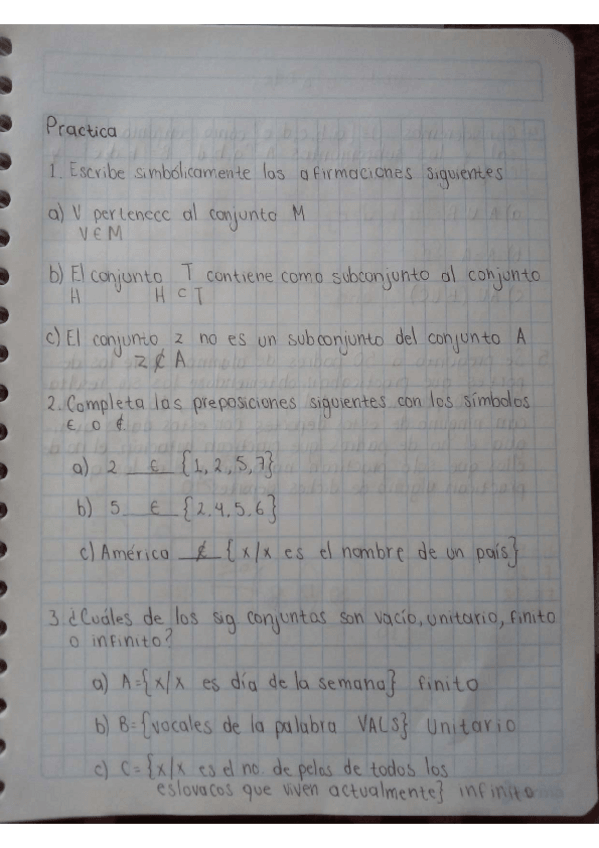 Practica
1. Escribe simbólicamente las afirmaciones siguientes
a) V pertenece al conjunto M
V ∈ M
b) El conjunto T contiene como subconjunto al conjunto
H H ⊂ T
c) El conjunto z no es un subconjunto del conjunto A
z ⊄ A
2. Completa las preposiciones siguientes con los símbolos
∈ o ∉
a) 2 ∈ {1, 2, 5, 7}
b) 5 ∈ {2, 4, 5, 6}
c) América ∉ {x/x es el nombre de un país}
3. ¿Cuáles de los sig conjuntos son vacío, unitario, finito
o infinito?
a) A={x/x es día de la semana} finito
b) B={vocales de la palabra VALS} Unitario
c) C={x/x es el no. de pelos de todos los
eslovacos que viven actualmente} infinito